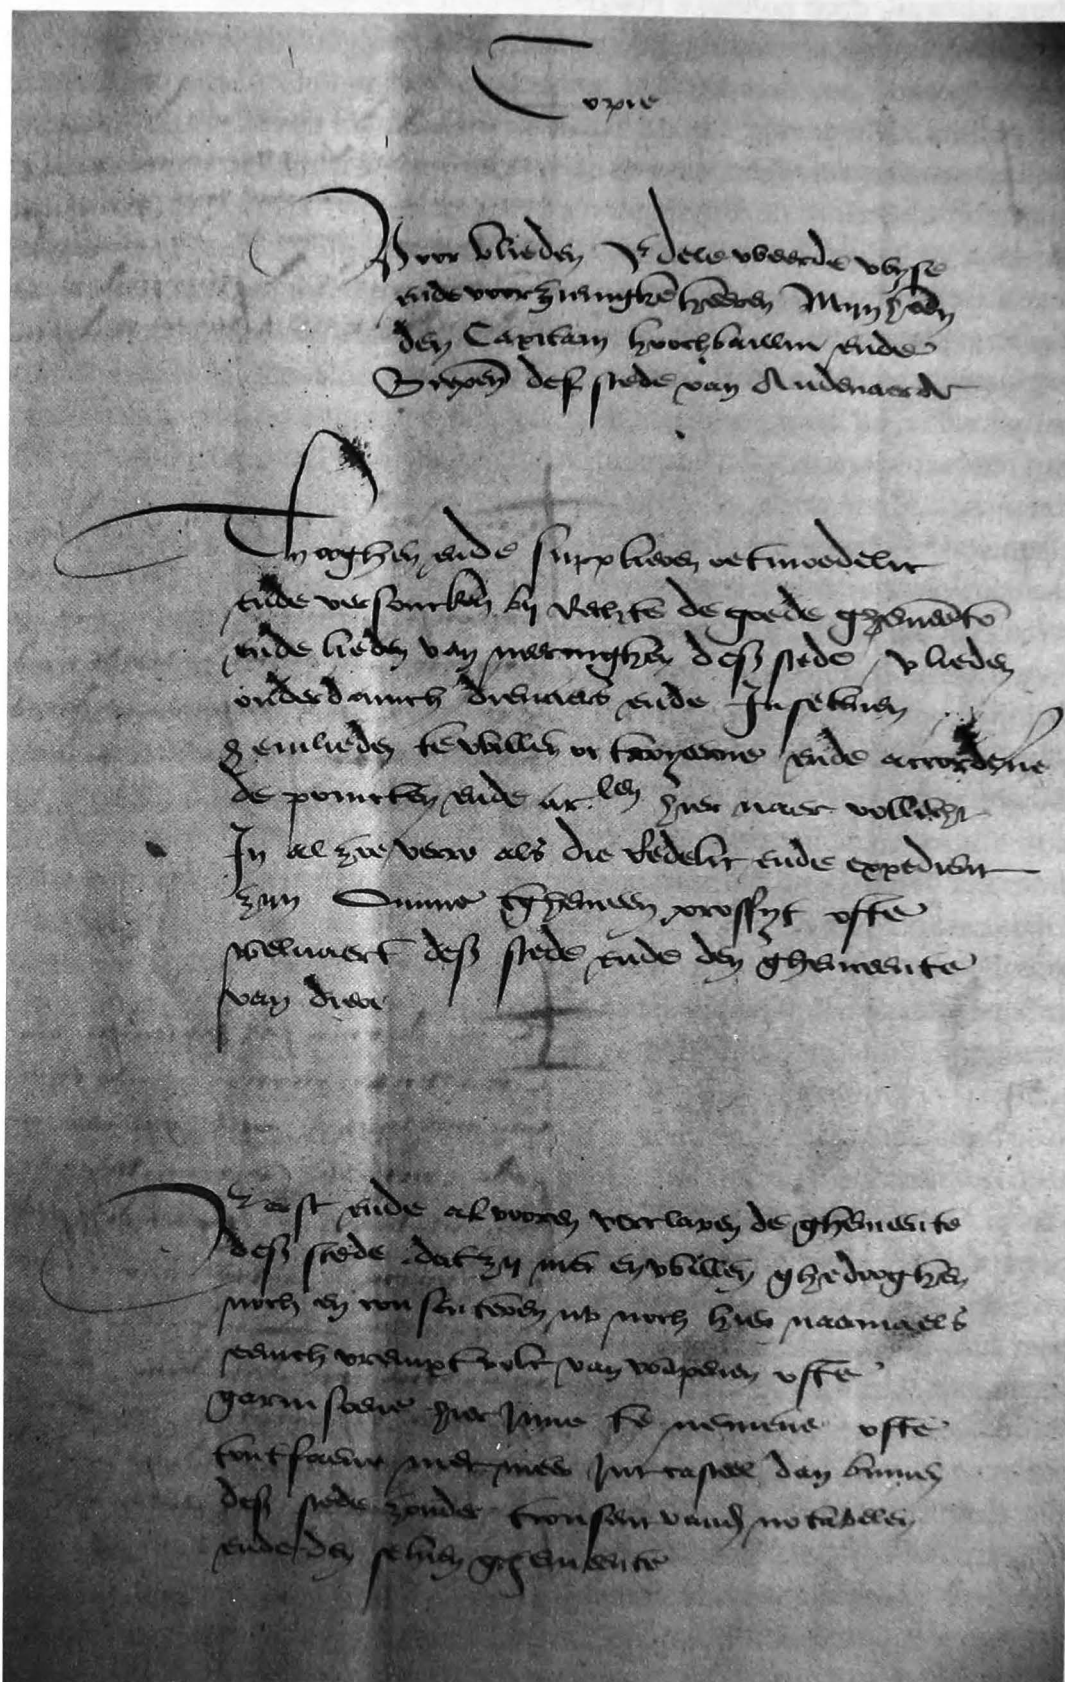 Copie
Voor ulieden Edele weerde wyse
ende voorzieneghe heeren Mynheeren
den Capitain hoochbailliu ende
Scepenen deser stede van Audenaerde
Thooghen ende supplieren oetmoedelic
ende versoucken by Rechte de goede ghemeente
ende lieden van neeringhen deser stede ulieden
onderdanich dienaers ende
hemlieden te willen octroyeerne ende accorderne
de poincten ende arlen hier naer volghen
In al zoo verre als die Redelic ende expedient
zyn omme tghemeen proffyt ofte
welvaert deser stede ende den ghemeente
van diere
Eerst ende alvooren verclaren de ghemeente
deser stede dat zy niet en willen ghedooghen
noch en consenteren nu noch hier naermaels
eenich vremt volc van wapenen ofte
garnisoene hier Inne te nemene ofte
tontfaene niet meer Int casteel dan binnen
deser stede zonder tconsent vanden notabelen
ende den selven ghemeente